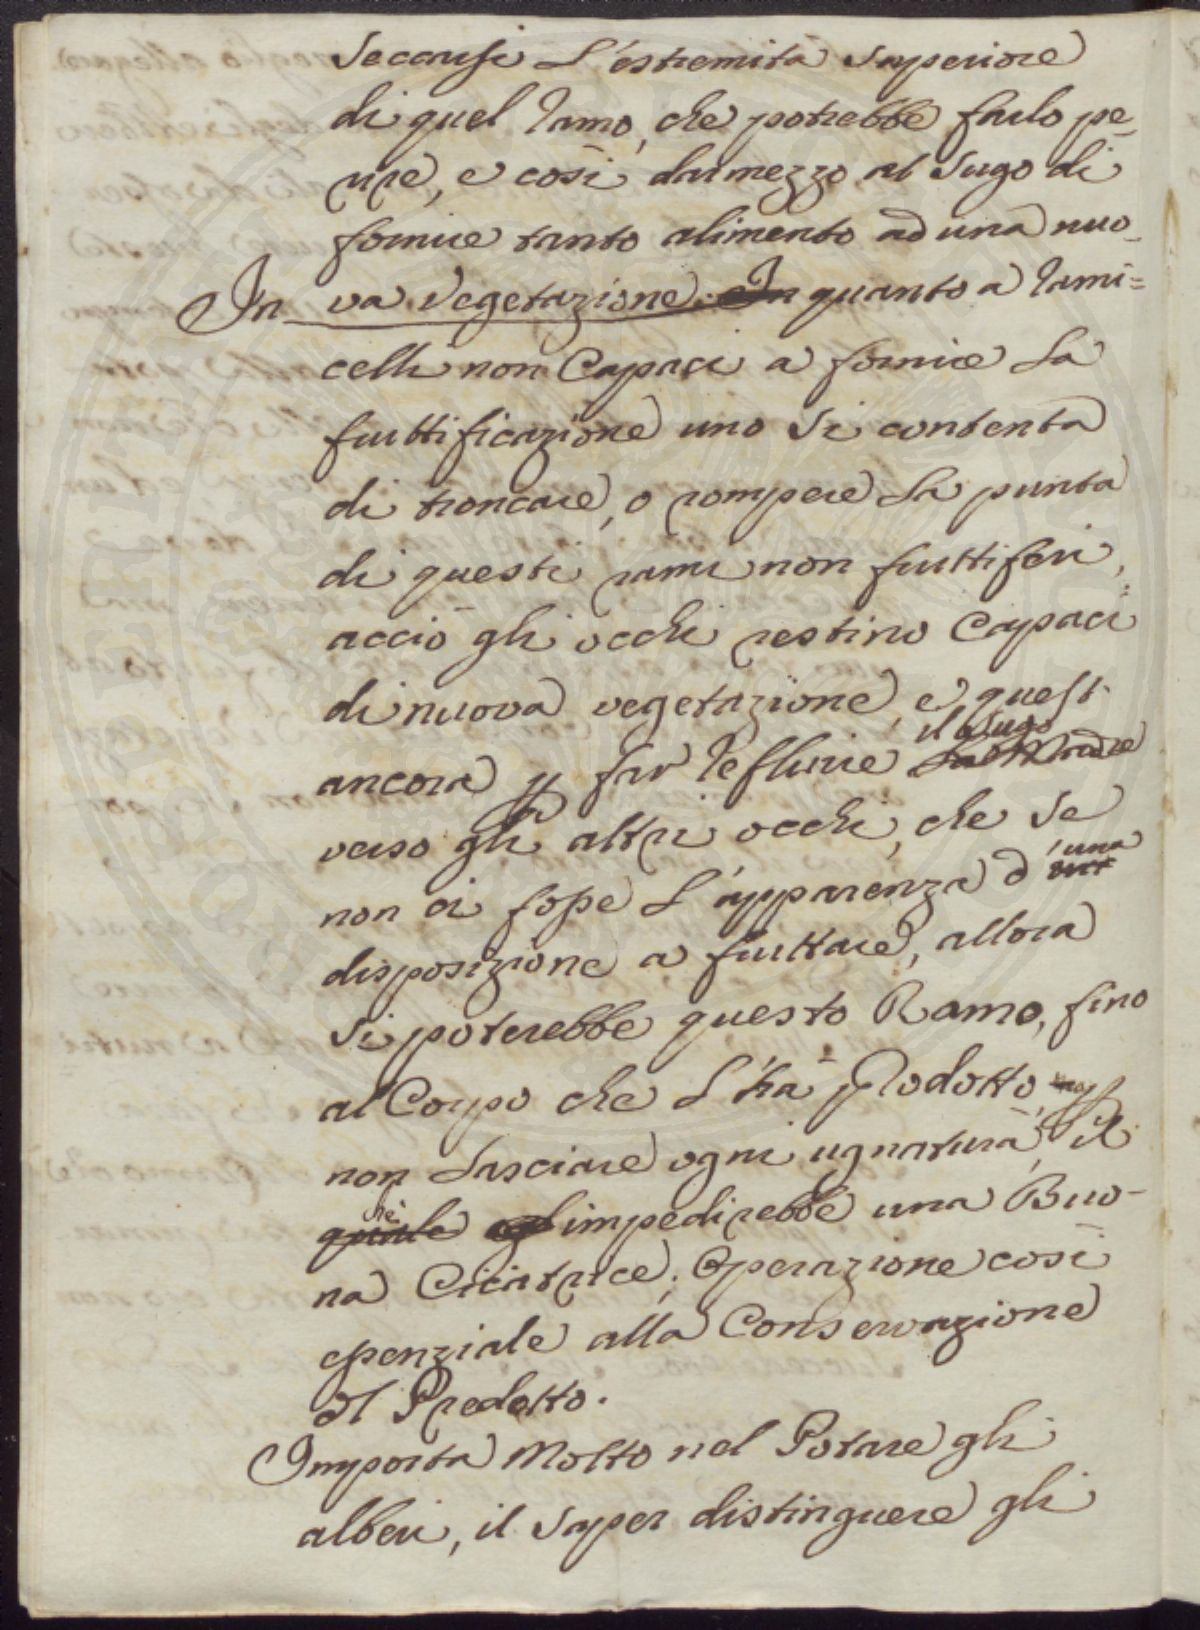 seccarsi L'estremita Superiore
di quel Ramo, che potrebbe farlo pe-
rire, e così dar mezzo al Sugo di
fornire tanto alimento ad una nuo-
In va Vegetazione. In quanto a Rami=
celli non Capaci a fornire La
fruttificazione uno Si contenta
di troncare, o rompere La punta
di questi rami non fruttiferi,
acciò gli occhi restino Capaci
di nuova vegetazione, e quest.
il Sugo
ancora p far Refluire La Madre
verso gli altri occhi, che Se
una
non ci fosse L'apparenza d'
disposizione a fruttare, allora
Si poterebbe questo Ramo, fino
al Corpo che L'hà prodotto, p
non Lasciare ogni ugnatura, il
che
quale impedirebbe una Buo-
na Cicatrice; Operazione così
essenziale alla Conservazione
del Predotto.
Importa Molto nel Potare gli
alberi, il Saper distinguere gli